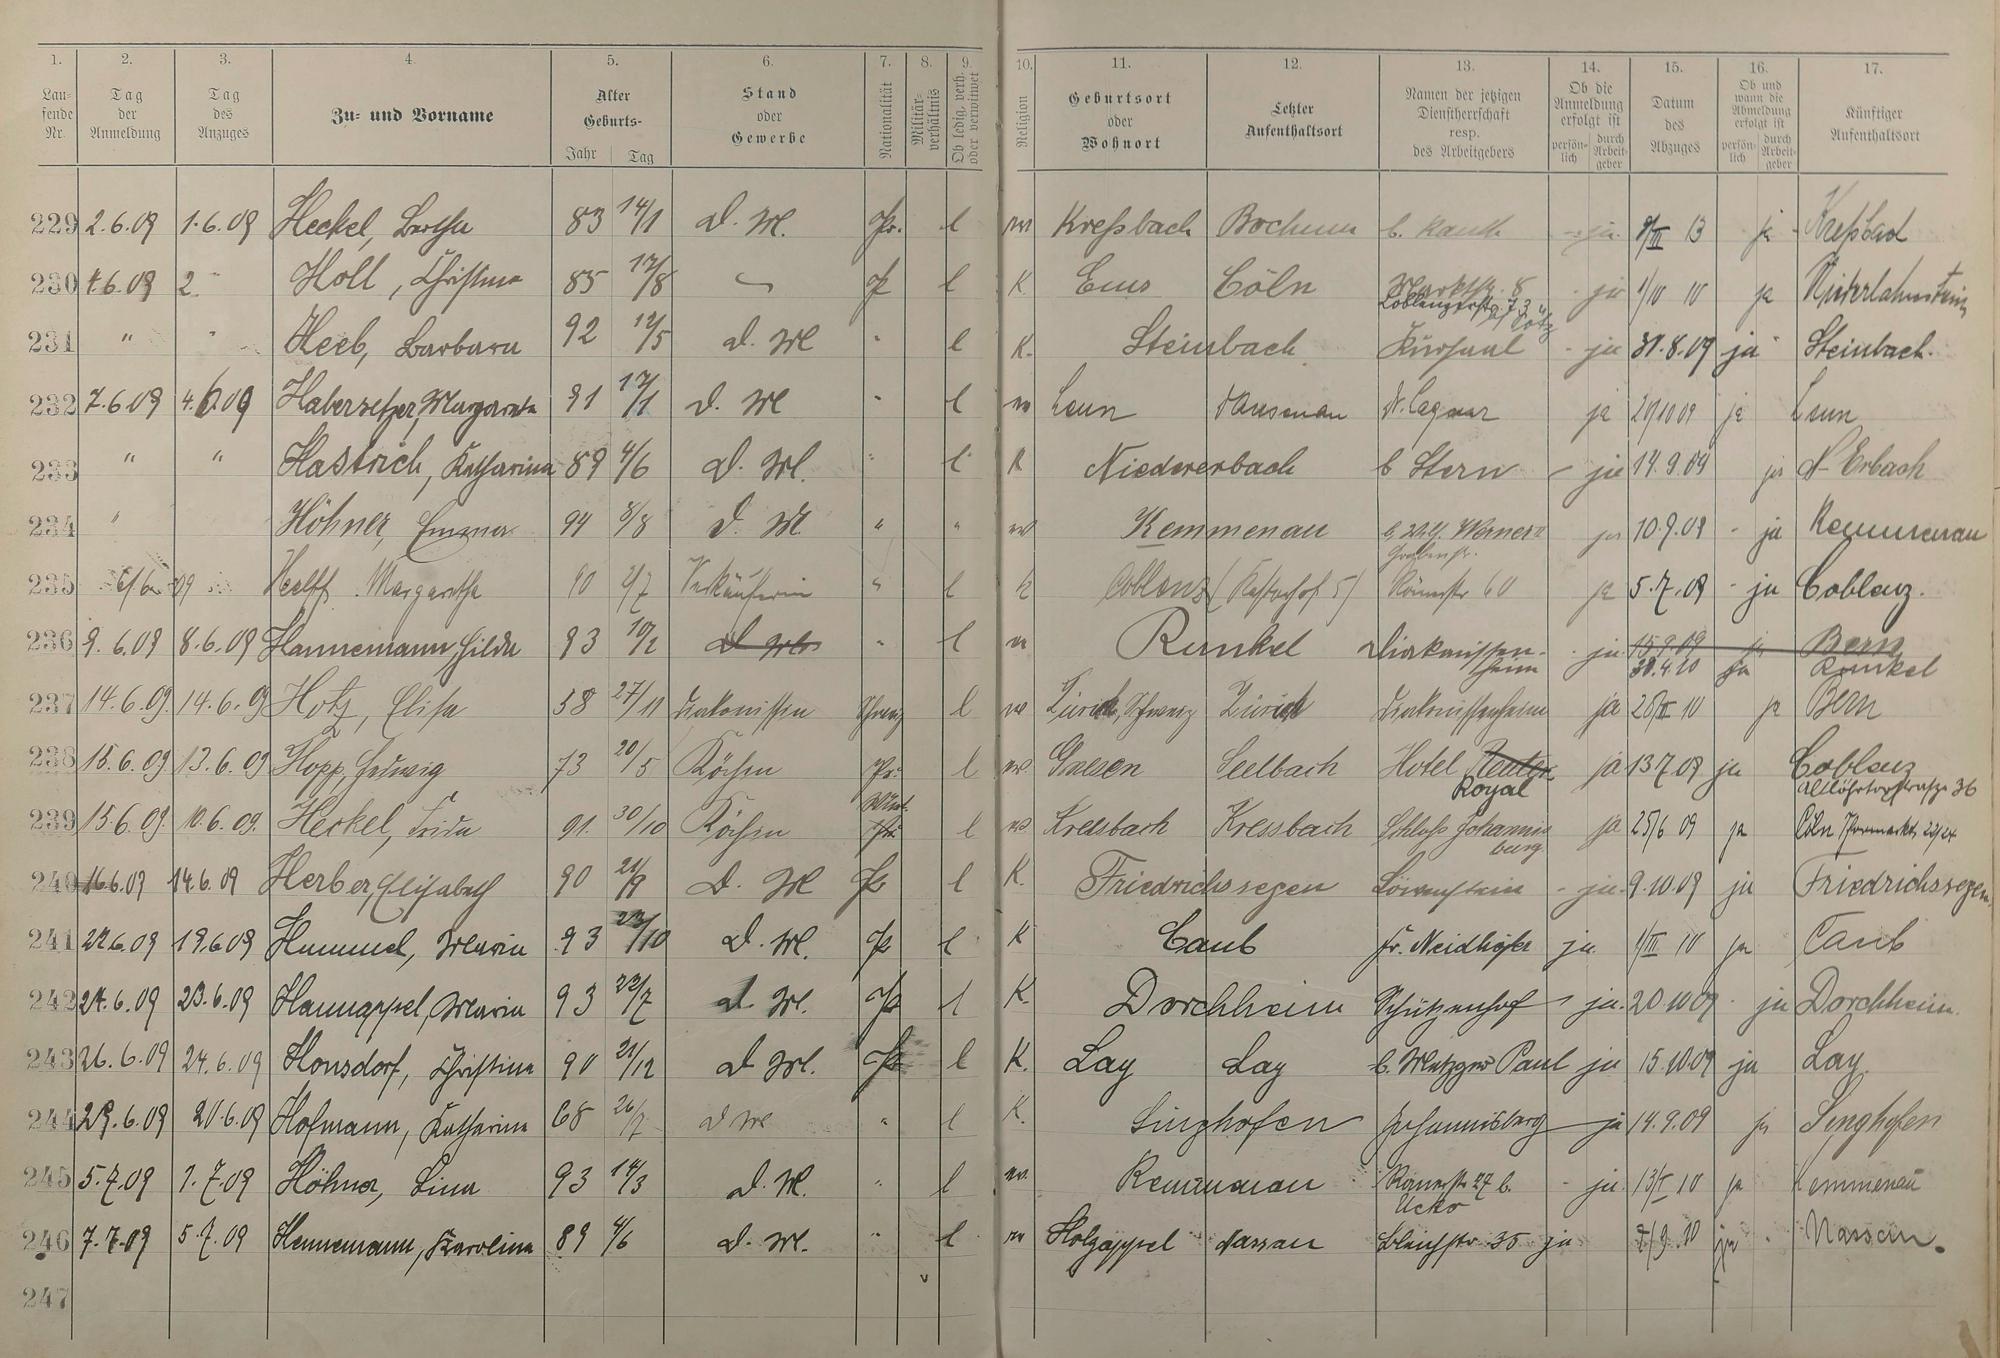 1. 2. 3. 4. 5. 6. 7. 8. 9. 10. 11. 12. 13. 14. 15. 16. 17.
Lau-
fende
Nr.
Tag
der
Anmeldung
Tag
des
Anzuges
Zu- und Vorname
Alter
Geburts-
Jahr Tag
Stand
oder
Gewerbe
Nationalität
Militär-
verhältnis
Ob ledig, verh.
oder verwitwet
Religion
Geburtsort
oder
Wohnort
Letzter
Aufenthaltsort
Namen der jetzigen
Dienstherrschaft
resp.
des Arbeitgebers
Ob die
Anmeldung
erfolgt ist
persön-
lich
durch
Arbeit-
geber
Datum
des
Abzuges
Ob und
wann die
Abmeldung
erfolgt ist
persön-
lich
durch
Arbeit-
geber
Künftiger
Aufenthaltsort
229 2.6.09 1.6.09 Heckel, Bertha 83 14/1 D. M. Pr. l Kreßbach Bochum b. ja 13 ja
230 4.6.09 2. Holl, Christina 85 17/8 l K. Ems Cöln Marktstr. 8 ja ja Niederlahnstein
Coblenzerstr. 73
231 " " Heeb, Barbara 92 12/5 D. M " l K. Steinbach Kursaal - ja 31.8.09 ja Steinbach.
232 7.6.09 4.6.09 Habersetzer, Margareta 91 17/1 D. M " l Dausenau ja ja
233 " " Hastrich, Katharina 89 4/6 D. M. " l K Niedererbach b Stern - ja 14.9.09 ja N-Erbach
234 " Höhner, Emma 94 8/8 D. M. " " Kemmenau b. Werner ja 10.9.09 - ja Kemmenau
235 6/6 09 Margaretha 90 2/7 Verkäuferin " l Coblenz (Kasthof 5) Römerstr 60 ja 5.7.09 - ja Coblenz.
236 9.6.09 8.6.09 Hannemann, Hilda 93 10/2 D. M. " l Runkel Diakonissen- - ja 15.9.09 ja Bern
heim 30.4.10 ja Runkel
237 14.6.09. 14.6.09 Hotz, Elisa 58 27/11 Diakonissin Schweiz l Zürich, Schweiz Zürich Diakonissenheim ja 10 ja Bern
238 15.6.09 13.6.09 Hopp, Hedwig 73 20/5 Köchin Pr. l Seelbach Hotel Reuter ja 13 7.09 ja Coblenz
Royal Altlöhrtorstraße 36
239 15.6.09. 10.6.09. Heckel, Frida 91. 30/10 Köchin l Kressbach Schloß Johannis ja 25/6 09 ja Cöln
burg
240 16.6.09 14.6.09 Herber, Elisabeth 90 21/9 D. M Pr l K. Friedrichssegen Löwenstein - ja 9.10.09 ja Friedrichssegen
241 22.6.09 19.6.09 Hummel, Maria 93 /10 D. M. Pr l K Caub Fr. Neidhöfer ja 1/III 10 ja Caub
242 24.6.09 23.6.09 Hannappel, Maria 93 22/7 D. M. Pr l K. Dorchheim Schützenhof ja. 20.10 09 - ja Dorchheim.
243 26.6.09 24.6.09 Honsdorf, Christina 90 21/12 D. M. Pr l K. Lay Lay b. Metzger Paul ja 15.10.09 ja Lay.
244 29.6.09 20.6.09 Hofmann, Katharina 68 26/7 D M " l K. Singhofen Johannisberg ja 14.9.09 ja Singhofen
245 5.7.09 1.7.09 Höhner, Lina 93 14/3 D. M. " l Kemmenau Römerstr 27 b. - ja 10 ja Kemmenau
Ucko
246 7.7.09 5.7.09 Hennemann, Karolina 89 4/6 D. M. " l Holzappel Nassau Bleichstr 35 ja ja Nassau.
247